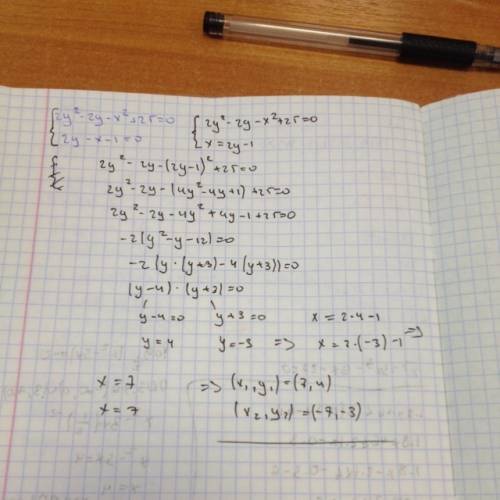 {2y²-2y-x²+25=0 {2y²-2y-x²+25=0
{2y-x-1=0 {x=2y-1
2y²-2y-(2y-1)²+25=0
2y²-2y-(4y²-4y+1)+25=0
2y²-2y-4y²+4y-1+25=0
-2(y²-y-12)=0
-2(y·(y+3)-4(y+3))=0
(y-4)·(y+3)=0
y-4=0 y+3=0 x=2·4-1
y=4 y=-3 => x=2·(-3)-1 =>
x=7 => (x₁,y₁)=(7,4)
x=7 (x₂,y₂)=(-7,-3)